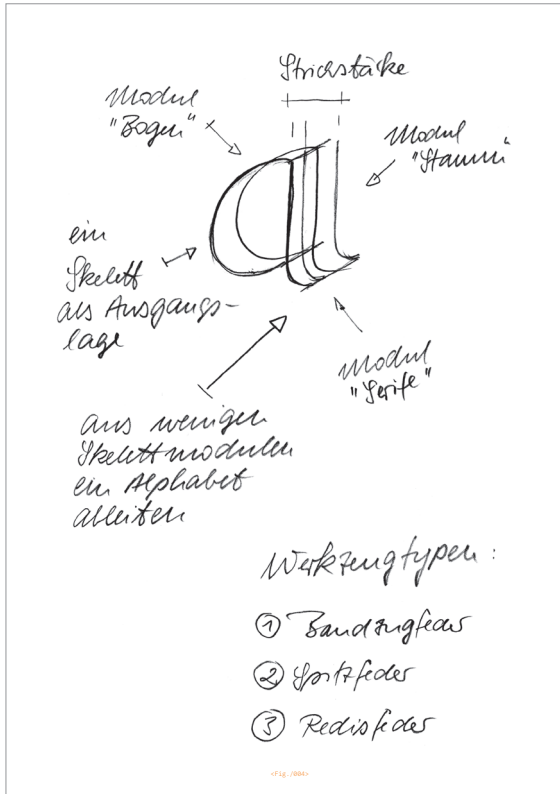 Strichstärke
Modul
"Bogen"
Modul
"Stamm"
ein
Skelett
als Ausgangs-
lage
Modul
"Serife"
aus wenigen
Skelettmodulen
ein Alphabet
ableiten
Werkzeugtypen:
1 Bandzugfeder
2 Spitzfeder
3 Redisfeder
<Fig./004>